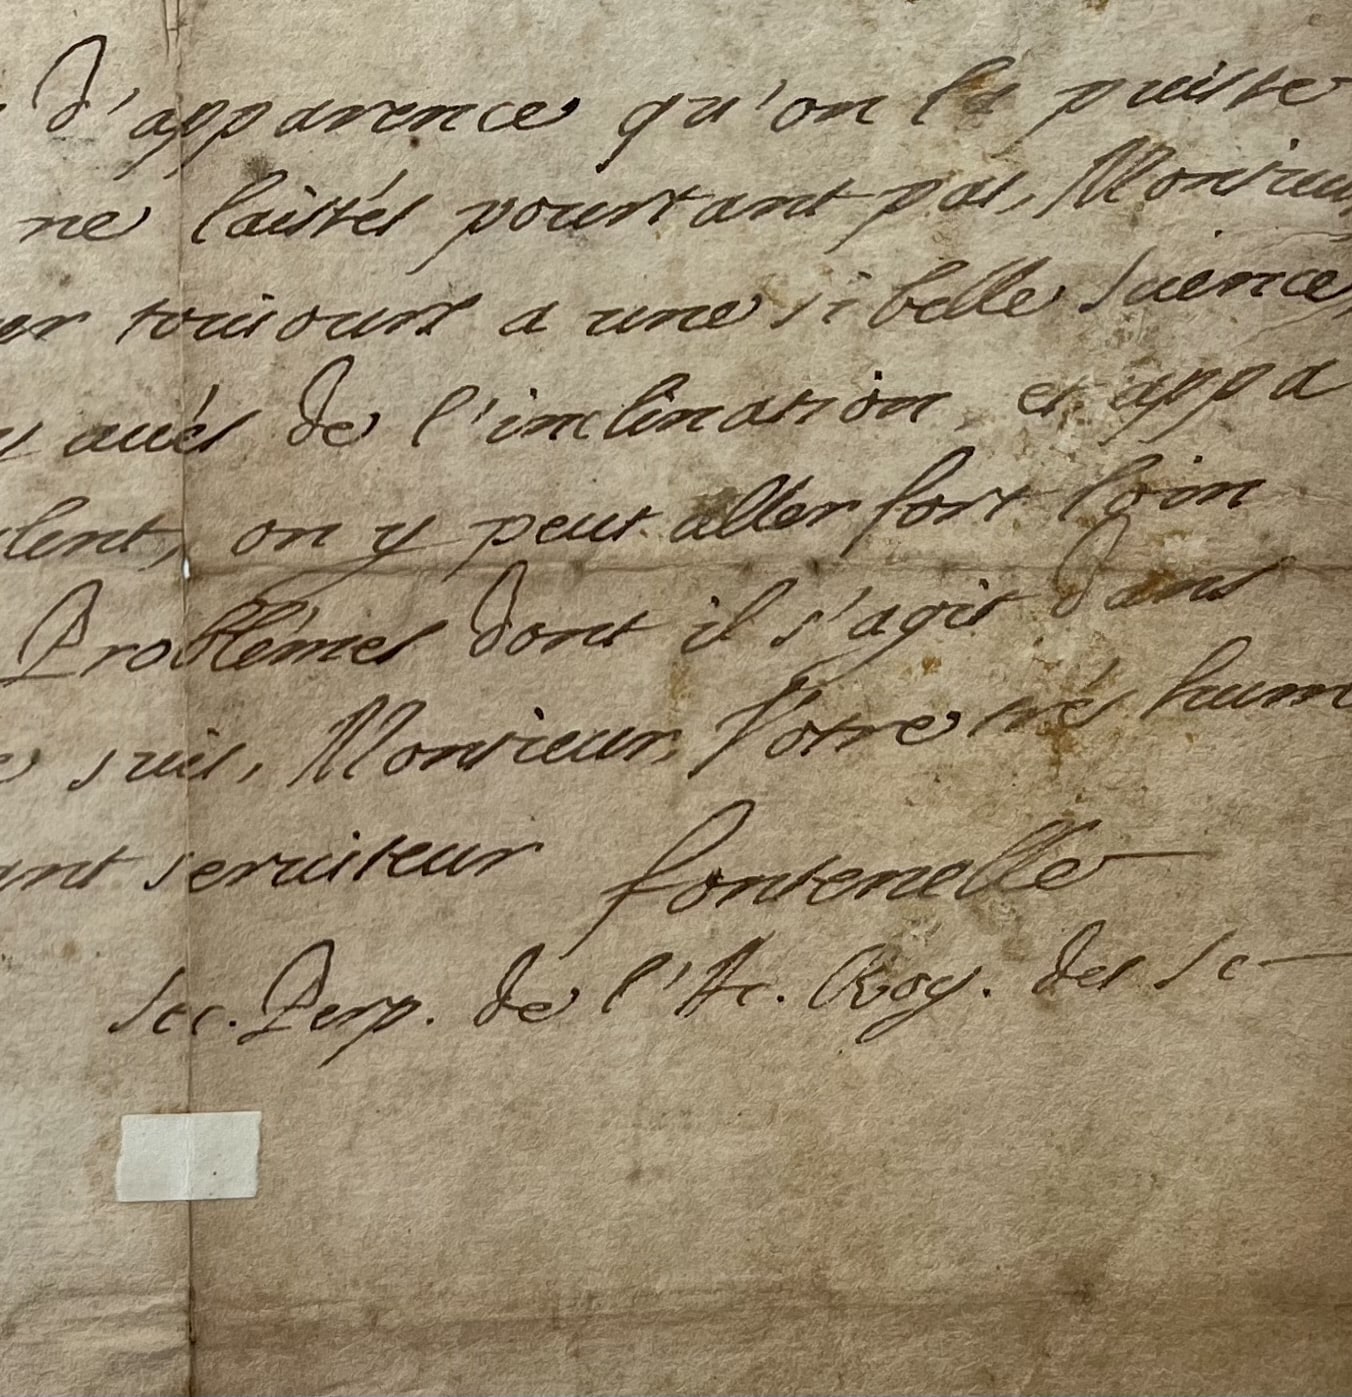 d'apparence qu'on la puisse
ne laissés pourtant pas, Monsieur
er tousjours a une si belle science,
avés de l'inclination, et appa
lent, on y peut aller fort loin
Problêmes dont il s'agit dans
suis, Monsieur, Votre trés hum
ant serviteur fontenelle
Sec. Perp. de l'Ac. Roy. des Sc